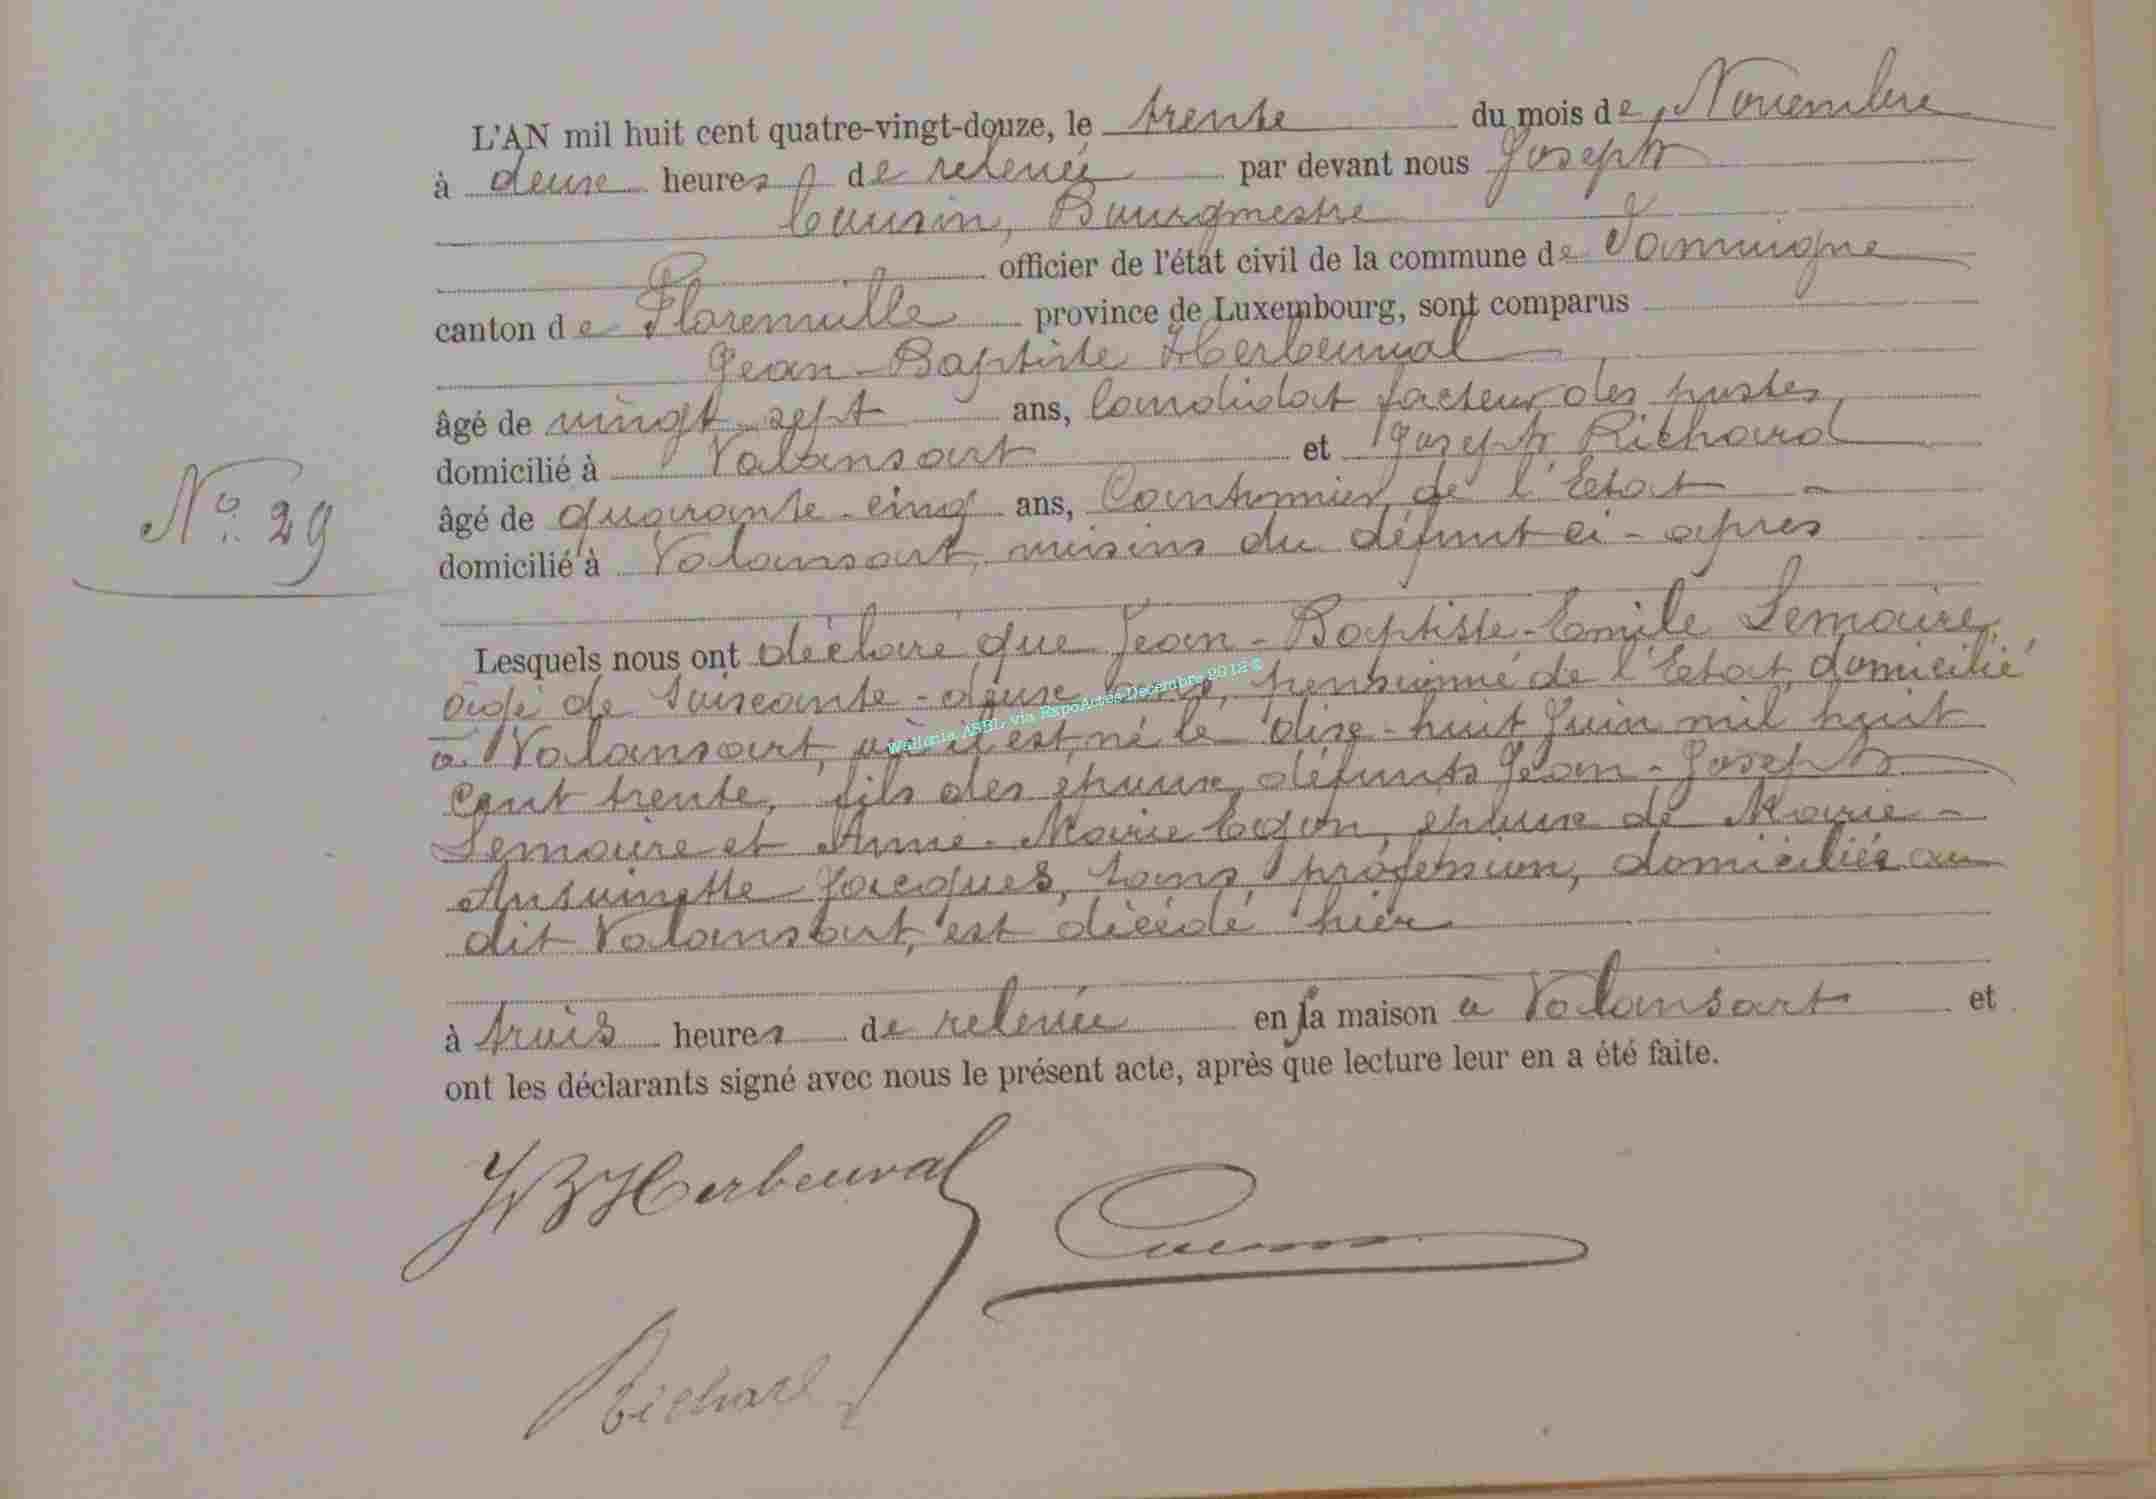 L'AN mil huit cent quatre-vingt-douze, le trente du mois de Novembre
à deux heures de relevée par devant nous Joseph
Cousin, Bourgmestre
officier de l'état civil de la commune de Jamoigne
canton de Florenville province de Luxembourg, sont comparus
Jean-Baptiste Herbeuval
âgé de vingt-sept ans, Candidat facteur des postes,
domicilié à Valansart et Joseph Richard
N° 29
âgé de quarante-cinq ans, Cantonnier de l'Etat
domicilié à Valansart, voisins du défunt ci-après
Lesquels nous ont déclaré que Jean-Baptiste-Emile Lemaire,
âgé de soixante-deux ans, pensionné de l'Etat, domicilié
à Valansart, où il est né le dix-huit Juin mil huit
cent trente, fils des époux défunts Jean-Joseph
Lemaire et Anne-Marie Egon, époux de Marie-
Antoinette Jacques, sans profession, domiciliés au
dit Valansart, est décédé hier
à trois heures de relevée en sa maison à Valansart et
ont les déclarants signé avec nous le présent acte, après que lecture leur en a été faite.
JB Herbeuval
Cousin
Richard
Wallonia ASBL via ExpoActes Decembre 2012 ©